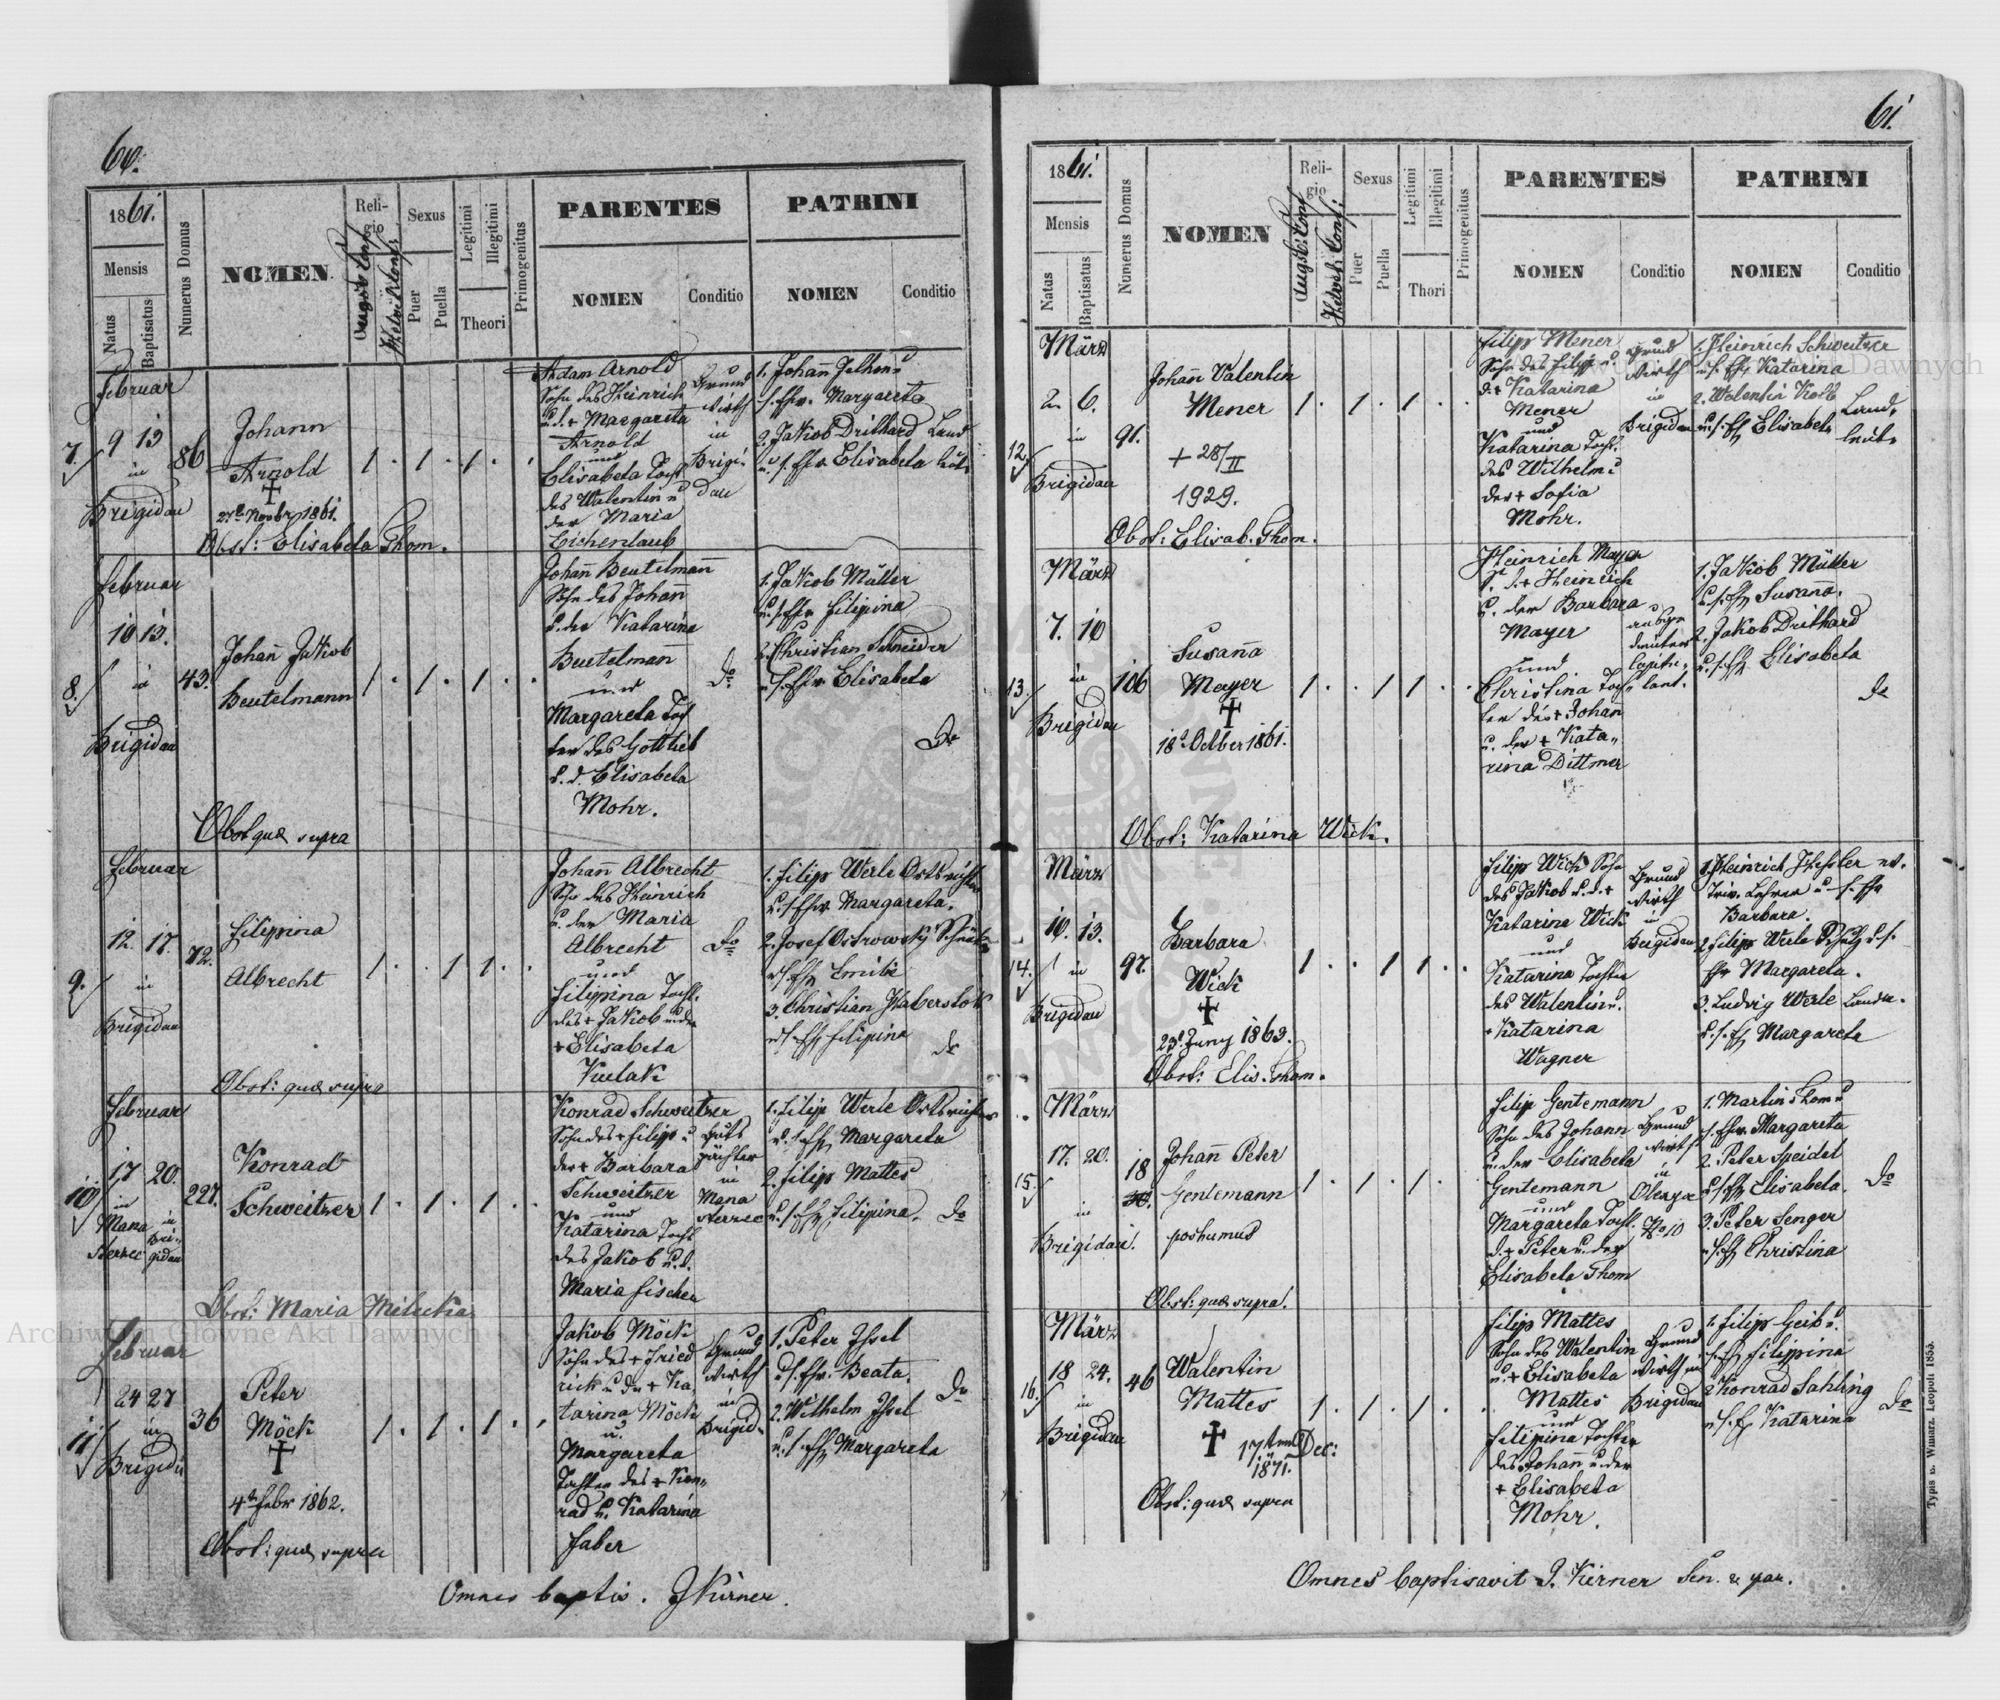 60.
1861.
Mensis
Natus
Baptisatus
Numerus Domus
NOMEN.
Religio
Augsb. Conf.
Helvet. Conf.
Sexus
Puer
Puella
Legitimi
Illegitimi
Theori
Primogenitus
PARENTES
NOMEN
Conditio
PATRINI
NOMEN
Conditio
Februar
7.
9 13
in
Brigidau
86
Johann
Arnold
†
27t Novbr 1861.
Obst: Elisabeta Thom.
1 . 1 . 1 .
Adam Arnold
Sohn des Heinrich
u. d. + Margareta
Arnold
und
Elisabeta Tocht
des Walentin u
der Maria
Eichenlaub
Grund
wirth
in
Brigi-
dau
1. Johañ
s. Ehfr. Margareta
2. Jakob Drithard
u. s. Ehfr Elisabeta
Land
Februar
8.
10 13.
in
Brigidau
43.
Johañ Jakob
Beutelmann
1 . 1 . 1 . .
Obst quæ supra
Johañ Beutelmañ
Sohn des Johañ
u. der Katarina
Beutelmañ
und
Margareta Toch
ter des Gottlieb
u. d. Elisabeta
Mohr.
do
1. Jakob Müller
u. s. Ehfr Filipina
2. Christian Schneider
u. s. Ehfr Elisabeta
do
Februar
9.
12. 17.
in
Brigidau
72.
Filippina
Albrecht
1 . . 1 1 . .
Obst: quæ supra
Johañ Albrecht
Sohn des Heinrich
u. der Maria
Albrecht
und
Filipina Tocht.
des + Jakob u der
+ Elisabeta
Kulak
do
1. Filip Werle Ortsrichter
u. s Ehfr Margareta.
2. Josef Ostrowsky
u s. Ehfr Emilie
3. Christian Haberstok
u s. Ehfr Filipina
do
Februar
10
17 20.
in
Mana
sterzec
in
Bri-
gidau
227.
Konrad
Schweitzer
1 . 1 . 1 . .
Obst: Maria Milucka
Konrad Schweitzer
Sohn des + Filip u
der + Barbara
Schweitzer
und
Katarina Tocht
des Jakob u. d.
Maria Fischer
Guts
pächter
in
Mana
sterzec
1. Filip Werle Ortsrichter
u. s. Ehfr Margareta
2. Filip Mattes
u. s. Ehfr Filipina.
do
Februar
11
24 27
in
Brigidau
36
Peter
Möck
†
4t Febr 1862.
Obst: quæ supra
1 . 1 . 1 . .
Jakob Möck
Sohn des + Fried
rich u der + Ka
tarina Möck
u.
Margareta
Tochter des + Kon-
rad u. Katarina
Faber
Grund
wirth
in
Brigid.
1. Peter Ihsel
u s. Ehfr. Beata.
2. Wilhelm Ihsel
u. s. Ehfr Margareta
do
Omnes baptis. J Kirner.
61.
1861.
Mensis
Natus
Baptisatus
Numerus Domus
NOMEN
Religio
Augsb: Conf
Helvet. Conf:
Sexus
Puer
Puella
Legitimi
Illegitimi
Thori
Primogenitus
PARENTES
NOMEN
Conditio
PATRINI
NOMEN
Conditio
März
12.
2. 6.
in
Brigidau
91.
Johañ Valentin
Mener
+ 28/II
1929.
Obst: Elisab. Thom.
1 . 1 . 1 . .
Filip Mener
Sohn des Filip u
d. + Katarina
Mener
und
Katarina Tocht.
des Wilhelm u
der + Sofia
Mohr.
Grund
wirth
in
Brigidau
1. Heinrich Schweitzer
u s. Ehfr Katarina
2. Walentin Kolb
u. s. Ehfr Elisabeta
Land,
leute
März
13.
7. 10
in
Brigidau
106
Susaña
Mayer
†
18t Octber 1861.
Obst: Katarina Wick.
1 . . 1 1 . .
Heinrich Mayer
S. d. + Heinrich
u. der Barbara
Mayer
und
Christina Toch
ter des + Johañ
u. der + Kata-
rina Dittmer
1. Jakob Müller
u s. Ehfr Susaña.
2. Jakob Drithard
u. s. Ehfr Elisabeta
do
März
14.
10. 13.
in
Brigidau
97.
Barbara
Wick
†
23t Juny 1863.
Obst: Elis. Thom.
1 . . 1 1 . .
Filip Wick Sohn
des Jakob u. d. +
Katarina Wick
und
Katarina Tochter
des Walentin u.
+ Katarina
Wagner
Grund
wirth
in
Brigidau
1. Heinrich Hessler
Triv. Lehrer u s. Ehfr
Barbara.
2. Filip Werle u. s.
Ehfr Margareta.
3. Ludwig Werle Landm.
u. s. Ehfr Margareta
März
15.
17. 20.
in
Brigidau.
18
Johañ Peter
Gentemann
poshumus
Obst: quæ supra.
1 . 1 . 1 . .
Filip Gentemann
Sohn des Johann
u. der Elisabeta
Gentemann
und
Margareta Tocht.
d. + Peter u. der
Elisabeta Thom
Grund
wirth
in
No 10
1. Martin Thom u
s. Ehfr Margareta
2. Peter Speidel
u s. Ehfr Elisabeta.
3. Peter Senger
u s. Ehfr Christina
do
März
16.
18 24.
in
Brigidau
46
Walentin
Mattes
† 17ten Dec:
1871.
Obst: quæ supra
1 . 1 . 1 . .
Filip Mattes
Sohn des Walentin
u. + Elisabeta
Mattes
und
Filipina Tochter
des Johañ u der
+ Elisabeta
Mohr.
Grund
wirth in
Brigidau
1. Filip Geib u.
s. Ehfr Filippina
2 Konrad Sahling
u s. Ehfr Katarina
do
Omnes baptisavit J. Kirner Sen. & par.
Typis v. Winiarz. Leopoli 1855.
Archiwum Główne Akt Dawnych